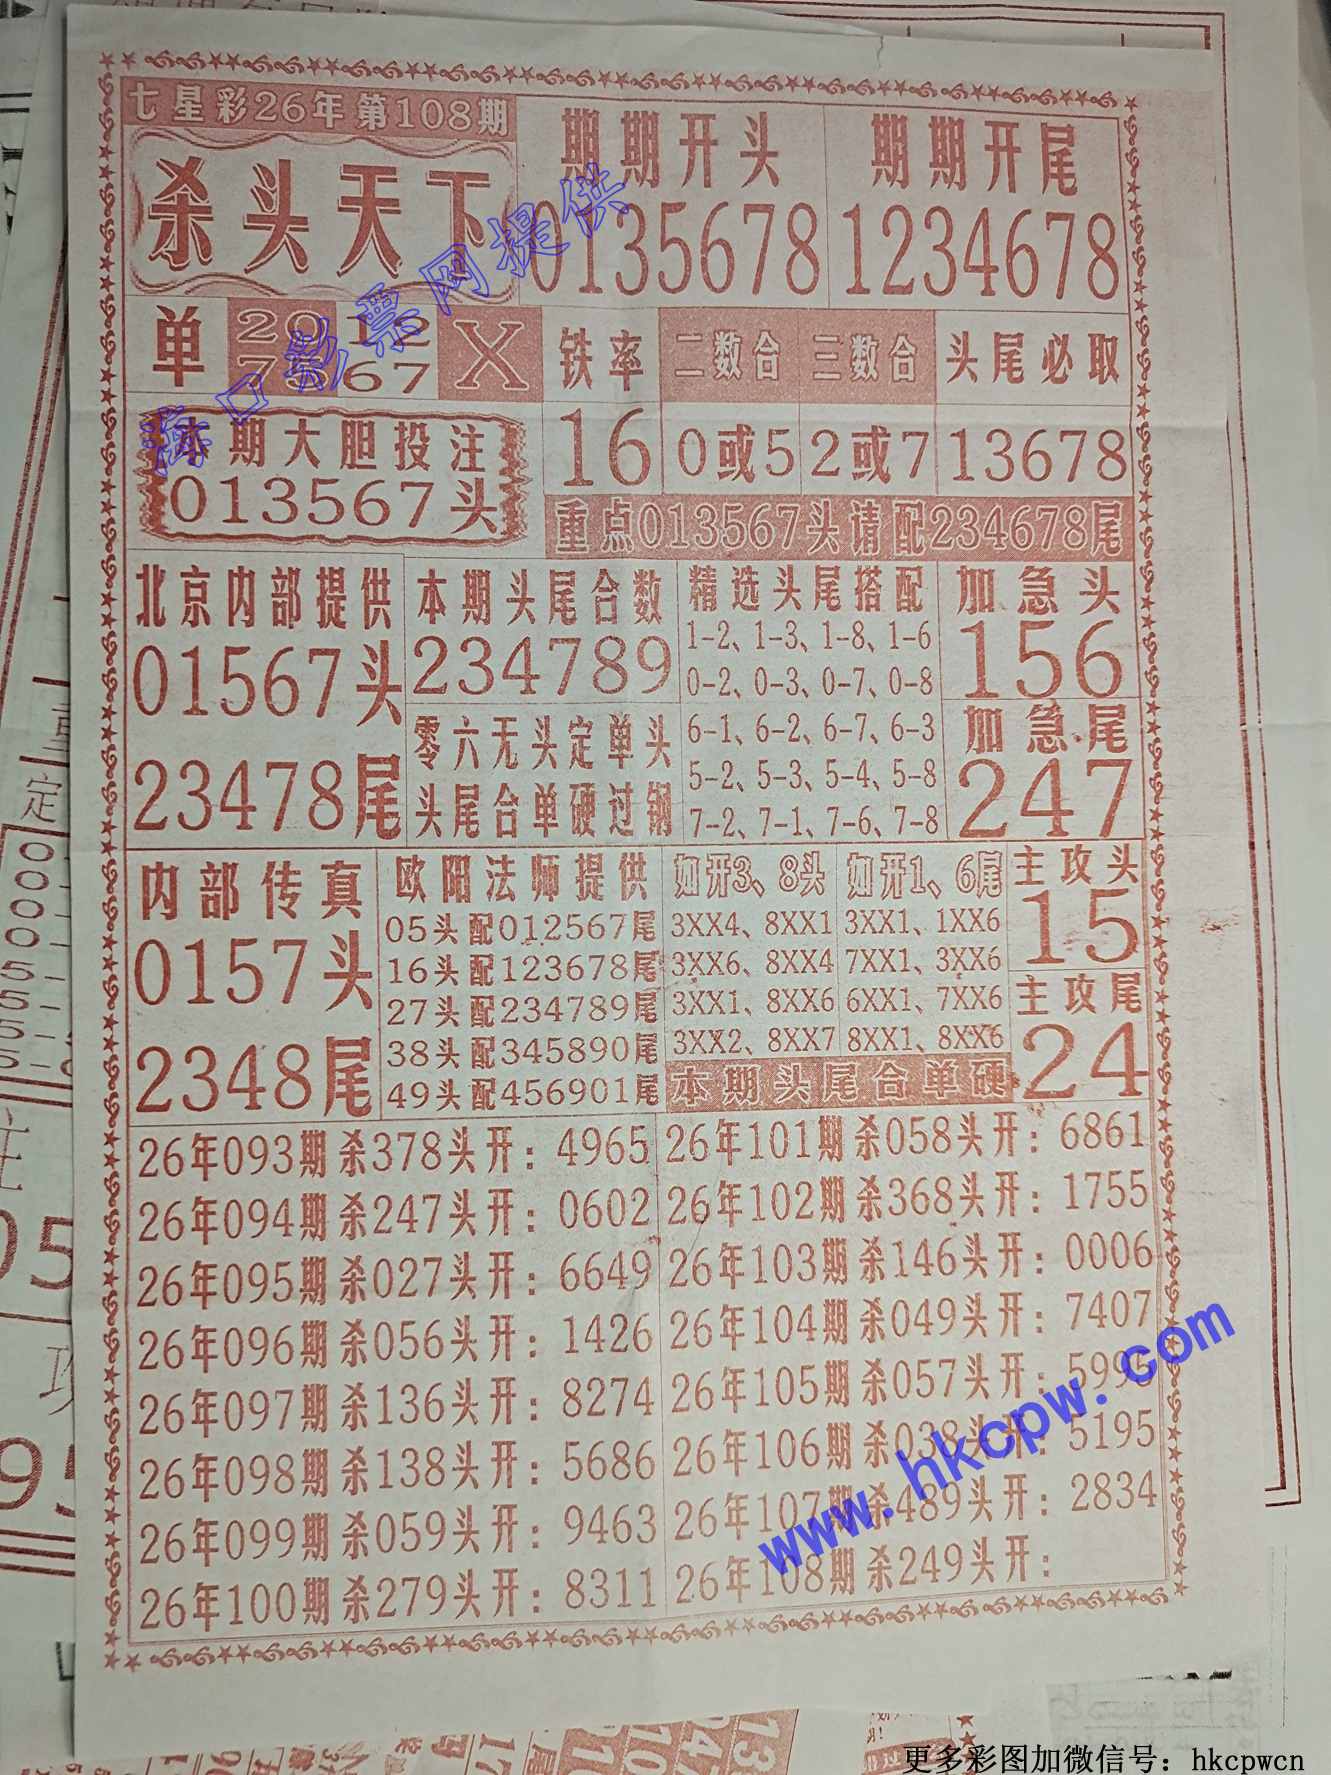 七星彩26年第108期
杀头天下
期期开头
0135678
期期开尾
1234678
单
2012
7567
X
铁率
16
二数合
0或5
三数合
2或7
头尾必取
13678
本期大胆投注
013567头
重点013567头请配234678尾
北京内部提供
01567头
23478尾
本期头尾合数
234789
零六无头定单头
头尾合单硬过钢
精选头尾搭配
1-2、1-3、1-8、1-6
0-2、0-3、0-7、0-8
6-1、6-2、6-7、6-3
5-2、5-3、5-4、5-8
7-2、7-1、7-6、7-8
加急头
156
加急尾
247
内部传真
0157头
2348尾
欧阳法师提供
05头配012567尾
16头配123678尾
27头配234789尾
38头配345890尾
49头配456901尾
如开3、8头
3XX4、8XX1
3XX6、8XX4
3XX1、8XX6
3XX2、8XX7
如开1、6尾
3XX1、1XX6
7XX1、3XX6
6XX1、7XX6
8XX1、8XX6
本期头尾合单硬
主攻头
15
主攻尾
24
26年093期杀378头开：4965
26年094期杀247头开：0602
26年095期杀027头开：6649
26年096期杀056头开：1426
26年097期杀136头开：8274
26年098期杀138头开：5686
26年099期杀059头开：9463
26年100期杀279头开：8311
26年101期杀058头开：6861
26年102期杀368头开：1755
26年103期杀146头开：0006
26年104期杀049头开：7407
26年105期杀057头开：5995
26年106期杀038头开：5195
26年107期杀489头开：2834
26年108期杀249头开：
海口彩票网提供
www.hkcpw.com
更多彩图加微信号：hkcpwcn